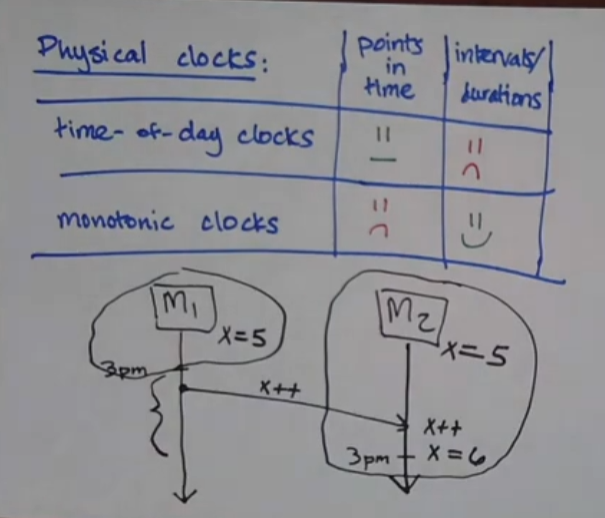 Physical clocks:
points
in
time
intervals/
durations
time-of-day clocks
monotonic clocks
M1
x=5
3pm
x++
M2
x=5
x++
3pm
x=6